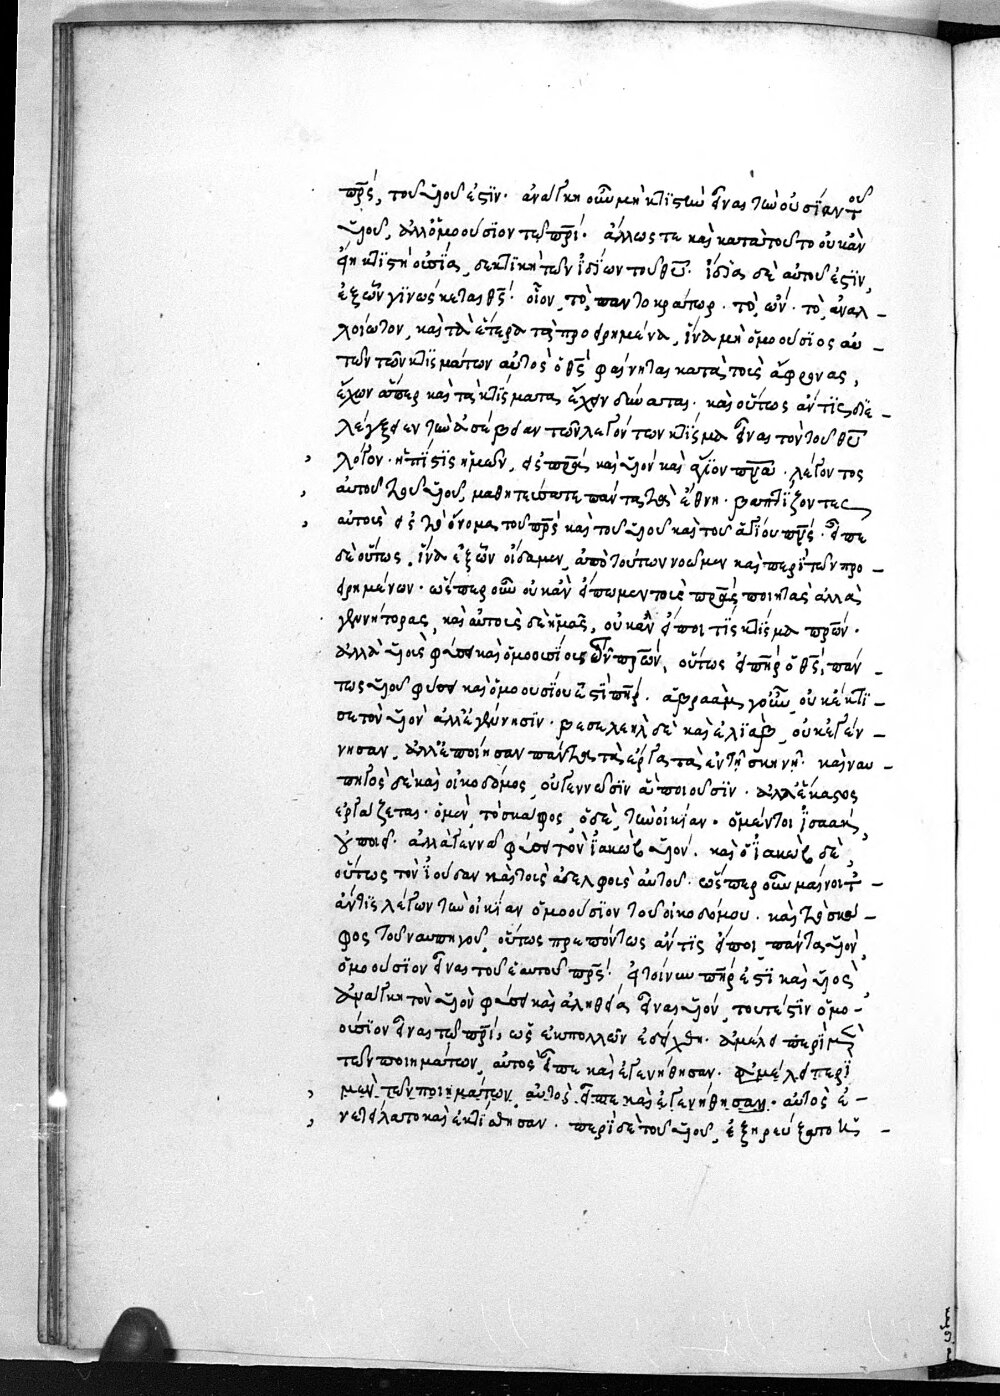 πρ̅ς, τοῦ υἱοῦ ἐστίν. ἀνάγκη οὖν μὴ κτιστὴν εἶναι τὴν οὐσίαν τοῦ
υἱοῦ, ἀλλ' ὁμοούσιον τῷ πρ̅ι. ἄλλως τε καὶ κατὰ τοῦτο οὐκ ἂν
εἴη κτιστὴ οὐσία, δεκτικὴ τῶν ἰδίων τοῦ θ̅υ. ἴδια δὲ αὐτοῦ ἐστίν,
ἐξ ὧν γινώσκεται θ̅ς. οἷον, τὸ παντοκράτωρ. τὸ, ὤν. τὸ, ἀναλ-
λοίωτον, καὶ τὰ ἕτερα τὰ προειρημένα, ἵνα μὴ ὁμοούσιος αὐ-
τῶν τῶν κτισμάτων αὐτὸς ὁ θ̅ς φαίνηται κατὰ τοὺς ἄφρονας,
ἔχων ἅπερ καὶ τὰ κτίσματα ἔχειν δύναται. καὶ οὕτως ἄν τις διε-
λέγξειεν τὴν ἀσέβειαν τῶν λεγόντων κτίσμα εἶναι τὸν τοῦ θ̅υ
λόγον. ἡ πίστις ἡμῶν, εἰς πρ̅α καὶ υἱὸν καὶ ἅγιον πν̅α. λέγοντος
αὐτοῦ τοῦ υἱοῦ, μαθητεύσατε πάντα τὰ ἔθνη. βαπτίζοντες
αὐτοὺς εἰς τὸ ὄνομα τοῦ πρ̅ς καὶ τοῦ υἱοῦ καὶ τοῦ ἁγίου πν̅ς. εἶπε
δὲ οὕτως, ἵνα ἐξ ὧν οἴδαμεν, ἀπὸ τούτων νοῶμεν καὶ περὶ τῶν προ-
ειρημένων. ὥσπερ οὖν οὐκ ἂν εἴπωμεν τοὺς πρ̅ας ποιητὰς ἀλλὰ
γεννήτορας, καὶ αὐτοὺς δὲ ἡμᾶς, οὐκ ἂν εἴποι τις κτίσμα πρ̅ων.
ἀλλὰ υἱοὺς φύσει καὶ ὁμοουσίους τῶν πρ̅ων, οὕτως εἰ πη̅ρ ὁ θ̅ς, πάν-
τως υἱοῦ φύσει καὶ ὁμοουσίου ἐστὶ πη̅ρ. ἀβραὰμ γοῦν, οὐκ ἔκτι-
σε τὸν υἱὸν ἀλλ' ἐγέννησεν. βεσελεὴλ δὲ καὶ ἐλιὰβ, οὐκ ἐγέν-
νησαν, ἀλλ' ἐποίησαν πάντα τὰ ἔργα τὰ ἐν τῇ σκηνῇ. καὶ ναυ-
πηγὸς δὲ καὶ οἰκοδόμος, οὐ γεννῶσιν ἃ ποιοῦσιν. ἀλλ' ἕκαστος
ἐργάζεται. ὁ μὲν, τὸ σκάφος. ὁ δὲ, τὴν οἰκίαν. ὁ μέντοι ἰσαὰκ,
οὐ ποιεῖ. ἀλλὰ γεννᾷ φύσει τὸν ἰακὼβ υἱόν. καὶ ὁ ἰακὼβ δὲ,
οὕτως τὸν ἰούδαν καὶ τοὺς ἀδελφοὺς αὐτοῦ. ὥσπερ οὖν μαίνοιτ'
ἄν τις λέγων τὴν οἰκίαν ὁμοούσιον τοῦ οἰκοδόμου. καὶ τὸ σκά-
φος τοῦ ναυπηγοῦ, οὕτως πρεπόντως ἄν τις εἴποι, πάντα υἱὸν
ὁμοούσιον εἶναι τοῦ ἑαυτοῦ πρ̅ς. εἰ τοίνυν πη̅ρ ἐστι καὶ υἱὸς
ἀνάγκη τὸν υἱὸν φύσει καὶ ἀληθείᾳ εἶναι υἱόν, τουτέστιν ὁμο-
ούσιον εἶναι τῷ πρ̅ι, ὡς ἐκ πολλῶν ἐδείχθη. ἀμέλει περὶ μὲν
τῶν ποιημάτων, αὐτὸς εἶπε καὶ ἐγενήθησαν. ἀμέλει περὶ
μὲν τῶν ποιημάτων, αὐτὸς εἶπε καὶ ἐγενήθησαν. αὐτὸς ἐ-
νετείλατο καὶ ἐκτίσθησαν. περὶ δὲ τοῦ υἱοῦ, ἐξηρεύξατο ἡ